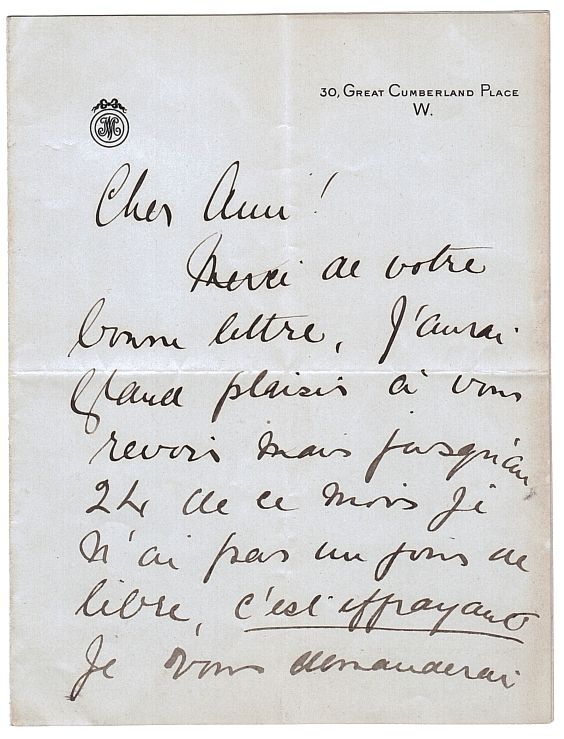 30, GREAT CUMBERLAND PLACE
W.
Cher Ami!
Merci de votre
bonne lettre, J'aurai
grand plaisir à vous
revoir mais jusqu'au
24 de ce mois je
n'ai pas un jour de
libre, c'est effrayant
Je vous demanderai